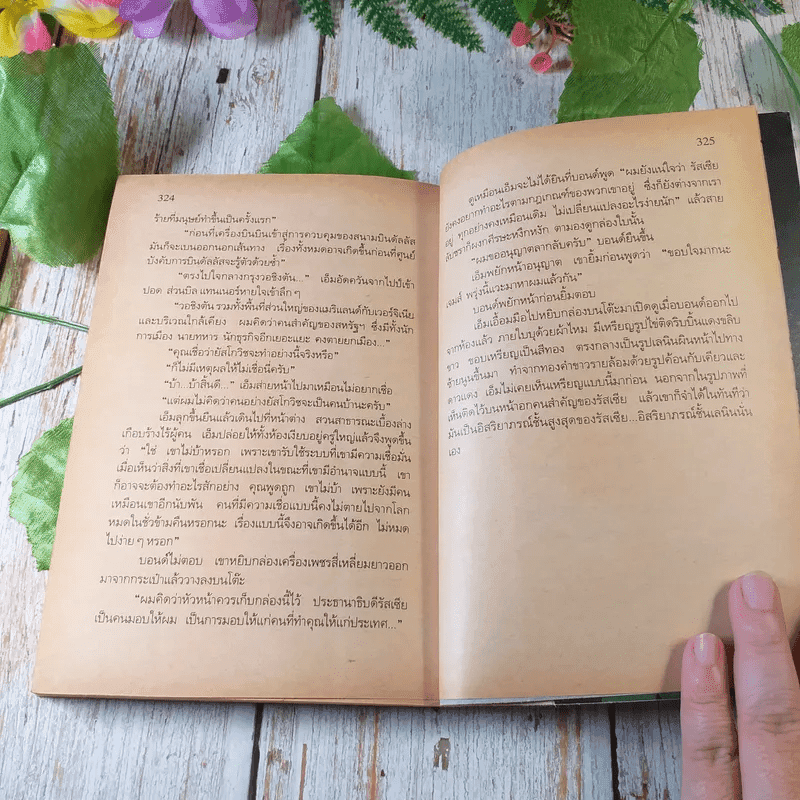 324
ร้ายที่มนุษย์ทำขึ้นเป็นครั้งแรก"
"ก่อนที่เครื่องบินบินเข้าสู่การควบคุมของสนามบินดัลลัส
มันก็จะเบนออกนอกเส้นทาง เรื่องทั้งหมดอาจเกิดขึ้นก่อนที่ศูนย์
บังคับการบินดัลลัสจะรู้ตัวด้วยซ้ำ"
"ตรงไปใจกลางกรุงวอชิงตัน..." เอ็มอัดควันจากไปป์เข้า
ปอด ส่วนบิล แทนเนอร์หายใจเข้าลึก ๆ
"วอชิงตัน รวมทั้งพื้นที่ส่วนใหญ่ของแมริแลนด์กับเวอร์จิเนีย
และบริเวณใกล้เคียง ผมคิดว่าคนสำคัญของสหรัฐฯ ซึ่งมีทั้งนัก
การเมือง นายทหาร นักธุรกิจอีกเยอะแยะ คงตายยกเมือง..."
"คุณเชื่อว่ายัสโกวิชจะทำอย่างนี้จริงหรือ"
"ก็ไม่มีเหตุผลให้ไม่เชื่อนี่ครับ"
"บ้า...บ้าสิ้นดี..." เอ็มส่ายหน้าไปมาเหมือนไม่อยากเชื่อ
"แต่ผมไม่คิดว่าคนอย่างยัสโกวิชจะเป็นคนบ้านะครับ"
เอ็มลุกขึ้นยืนแล้วเดินไปที่หน้าต่าง สวนสาธารณะเบื้องล่าง
เกือบร้างไร้ผู้คน เอ็มปล่อยให้ทั้งห้องเงียบอยู่ครู่ใหญ่แล้วจึงพูดขึ้น
ว่า "ใช่ เขาไม่บ้าหรอก เพราะเขารับใช้ระบบที่เขามีความเชื่อมั่น
เมื่อเห็นว่าสิ่งที่เขาเชื่อเปลี่ยนแปลงในขณะที่เขามีอำนาจแบบนี้ เขา
ก็อาจจะต้องทำอะไรสักอย่าง คุณพูดถูก เขาไม่บ้า เพราะยังมีคน
เหมือนเขาอีกนับพัน คนที่มีความเชื่อแบบนี้คงไม่ตายไปจากโลก
หมดในชั่วข้ามคืนหรอกนะ เรื่องแบบนี้จึงอาจเกิดขึ้นได้อีก ไม่หมด
ไปง่าย ๆ หรอก"
บอนด์ไม่ตอบ เขาหยิบกล่องเครื่องเพชรสี่เหลี่ยมยาวออก
มาจากกระเป๋าแล้ววางลงบนโต๊ะ
"ผมคิดว่าหัวหน้าควรเก็บกล่องนี้ไว้ ประธานาธิบดีรัสเซีย
เป็นคนมอบให้ผม เป็นการมอบให้แก่คนที่ทำคุณให้แก่ประเทศ..."
325
ดูเหมือนเอ็มจะไม่ได้ยินที่บอนด์พูด "ผมยังแน่ใจว่า รัสเซีย
ยังคงอยากทำอะไรตามกฎเกณฑ์ของพวกเขาอยู่ ซึ่งก็ยังต่างจากเรา
อยู่ ทุกอย่างคงเหมือนเดิม ไม่เปลี่ยนแปลงอะไรง่ายนัก" แล้วสาย
ลับชราก็ผงกศีรษะหงึกหงัก ตามองดูกล่องใบนั้น
"ผมขออนุญาตลากลับครับ" บอนด์ยืนขึ้น
เอ็มพยักหน้าอนุญาต เขายิ้มก่อนพูดว่า "ขอบใจมากนะ
เจมส์ พรุ่งนี้แวะมาหาผมแล้วกัน"
บอนด์พยักหน้าก่อนยิ้มตอบ
เอ็มเอื้อมมือไปหยิบกล่องบนโต๊ะมาเปิดดูเมื่อบอนด์ออกไป
จากห้องแล้ว ภายในบุด้วยผ้าไหม มีเหรียญรูปไข่ติดริบบิ้นแดงขลิบ
ขาว ขอบเหรียญเป็นสีทอง ตรงกลางเป็นรูปเลนินผินหน้าไปทาง
ซ้ายนูนขึ้นมา ทำจากทองคำขาวรายล้อมด้วยรูปค้อนกับเคียวและ
ดาวแดง เอ็มไม่เคยเห็นเหรียญแบบนี้มาก่อน นอกจากในรูปภาพที่
เห็นติดไว้บนหน้าอกคนสำคัญของรัสเซีย แล้วเขาก็จำได้ในทันทีว่า
มันเป็นอิสริยาภรณ์ชั้นสูงสุดของรัสเซีย...อิสริยาภรณ์ชั้นเลนินนั่น
เอง